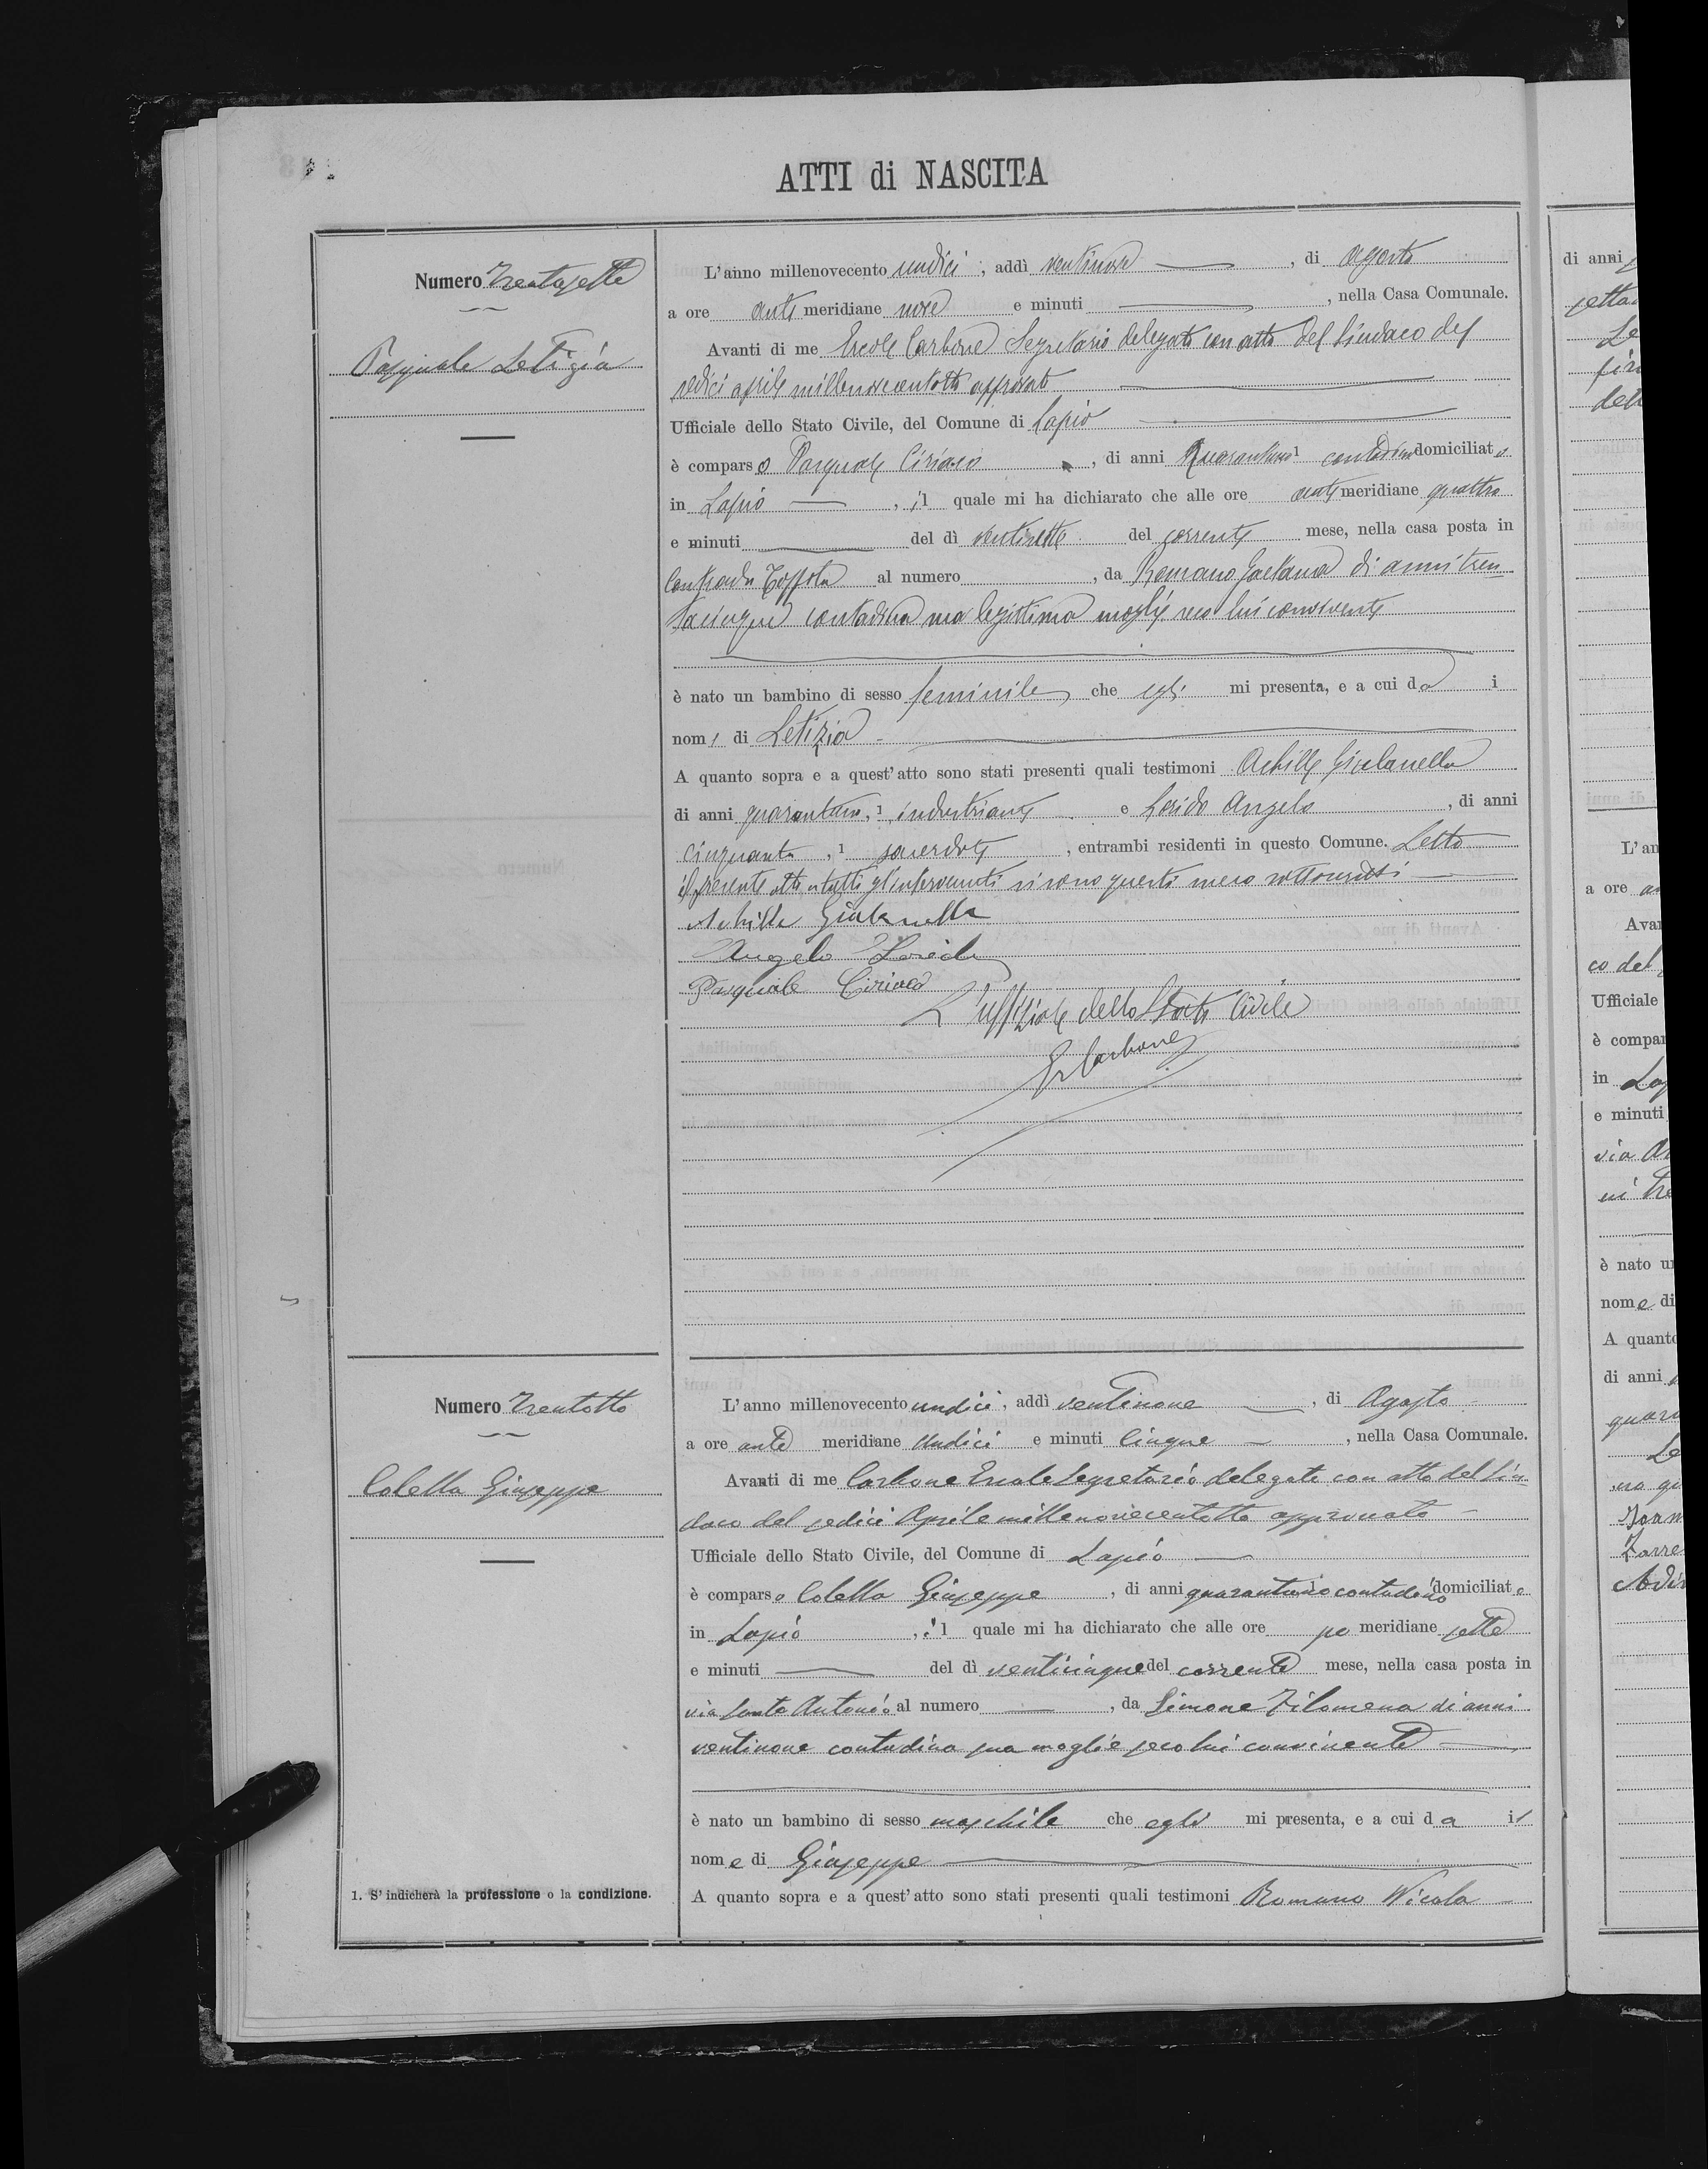 ATTI di NASCITA
Numero Trentasette
Pasquale Letizia
L'anno millenovecento undici, addì ventinove, di Agosto
a ore anti meridiane nove e minuti, nella Casa Comunale.
Avanti di me Ercole Carbone Segretario delegato con atto del Sindaco del
sedici aprile millenovecentotto approvato
Ufficiale dello Stato Civile, del Comune di Lapio
è comparso Pasquale Ciriaco, di anni Quarantuno 1 contadino domiciliato
in Lapio, il quale mi ha dichiarato che alle ore anti meridiane quattro
e minuti del dì ventisette del corrente mese, nella casa posta in
Contrada al numero, da Romano Gaetana di anni tren
tacinque contadina sua legittima moglie seco lui convivente
è nato un bambino di sesso feminile che egli mi presenta, e a cui da i
nomi di Letizia
A quanto sopra e a quest'atto sono stati presenti quali testimoni Achille Giulanella
di anni quarantuno, 1 industriante e Lorido Angelo, di anni
cinquanta, 1 sacerdote, entrambi residenti in questo Comune. Letto
il presente atto a tutti gl'intervenuti si sono questi meco sottoscritti
Achille Giulanella
Angelo Lorido
Pasquale Ciriaco
L'uffiziale dello Stato Civile
E. Carbone
Numero Trentotto
Colella Giuseppe
L'anno millenovecento undici, addì ventinove, di Agosto
a ore ante meridiane undici e minuti cinque, nella Casa Comunale.
Avanti di me Carbone Ercole Segretario delegato con atto del Sin
daco del sedici Aprile millenovecentotto approvato
Ufficiale dello Stato Civile, del Comune di Lapio
è comparso Colella Giuseppe, di anni quarantuno contadino domiciliato
in Lapio, il quale mi ha dichiarato che alle ore po meridiane sette
e minuti del dì venticinque del corrente mese, nella casa posta in
via Santo Antonio al numero, da Simone Filomena di anni
ventinove contadina sua moglie seco lui convivente
è nato un bambino di sesso maschile che egli mi presenta, e a cui da il
nome di Giuseppe
A quanto sopra e a quest'atto sono stati presenti quali testimoni Romano Nicola
1. S'indicherà la professione o la condizione.
di anni
L'an
a ore
Avan
co del
Ufficiale
è compar
in Lap
e minuti
via
è nato u
nome di
A quanto
di anni